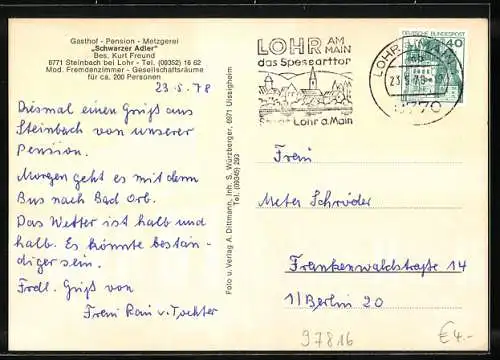 Gasthof - Pension - Metzgerei
„Schwarzer Adler"
Bes. Kurt Freund
8771 Steinbach bei Lohr - Tel. (09352) 16 62
Mod. Fremdenzimmer - Gesellschaftsräume
für ca. 200 Personen
23.5.78
Diesmal einen Gruß aus
Steinbach von unserer
Pension.
Morgen geht es mit dem
Bus nach Bad Orb.
Das Wetter ist halb und
halb. Es könnte bestän-
diger sein.
Frdl. Gruß von
Frau Rau u. Tochter
Foto u. Verlag A. Dittmann, Inh. S. Würzberger, 6971 Uissigheim
Tel. (09345) 293
LOHR AM MAIN
das Spessarttor
Lohr a. Main
LOHR
23.5.78
8770
DEUTSCHE BUNDESPOST
40
Frau
Meta Schröder
Frankenwaldstraße 14
1/Berlin 20
97816
€4.-